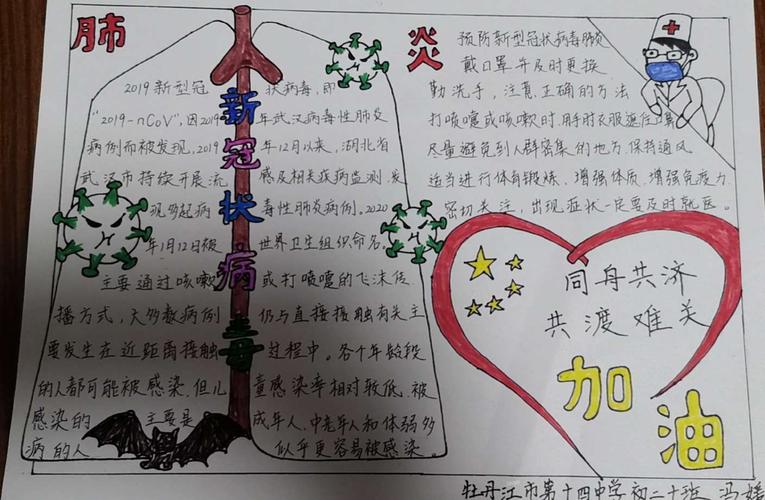 肺炎
新冠状病毒
2019新型冠状病毒,即
"2019-nCoV",因2019年武汉病毒性肺炎
病例而被发现,2019年12月以来,湖北省
武汉市持续开展流感及相关疾病监测,发
现多起病毒性肺炎病例。2020
年1月12日被世界卫生组织命名。
主要通过咳嗽或打喷嚏的飞沫传
播方式,大多数病例仍与直接接触有关主
要发生在近距离接触过程中。各个年龄段
的人都可能被感染,但儿童感染率相对较低,被
感染的主要是成年人,中老年人和体弱多
病的人似乎更容易被感染。
预防新型冠状病毒肺炎
戴口罩并及时更换
勤洗手,注意正确的方法
打喷嚏或咳嗽时,用手肘衣服遮住口鼻
尽量避免到人群密集的地方,保持通风
适当进行体育锻炼,增强体质,增强免疫力
密切关注,出现症状一定要及时就医。
同舟共济
共渡难关
加油
牡丹江市第十四中学初二十班 冯